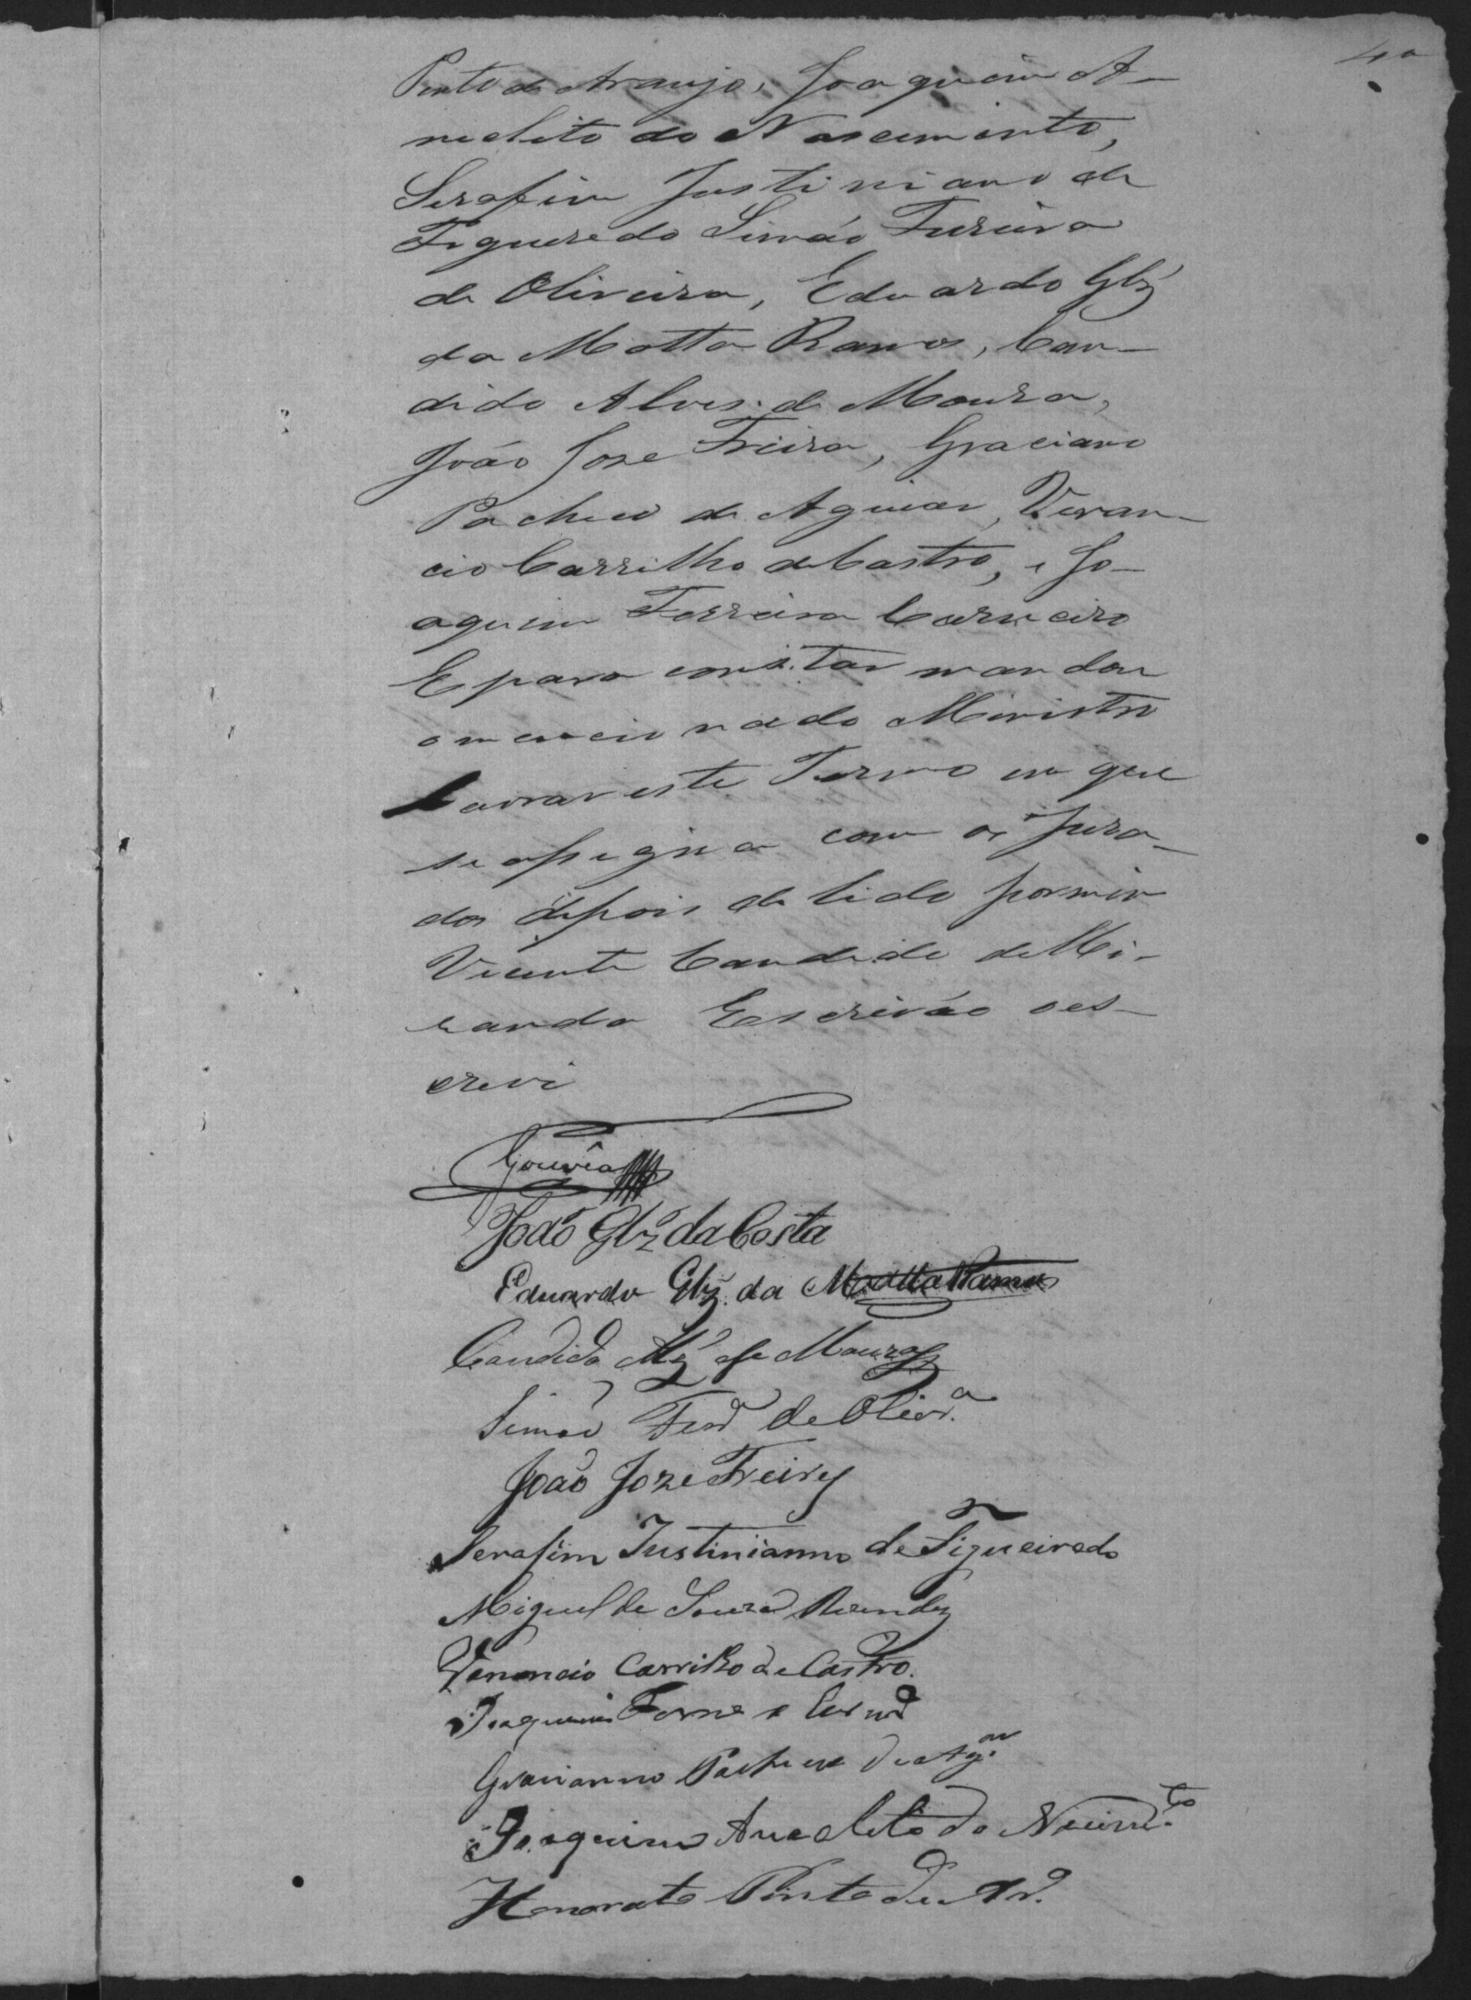 Pinto de Araujo, Joaquim A-
nacleto do Nascimento,
Serafim Justiniano de
Figueredo Simão Ferreira
de Oliveira, Eduardo Glz
da Motta Ramos, Can-
dido Alves de Moura,
João Jose Freira, Graciano
Pacheco de Aguiar, Venan-
cio Carrilho de Castro, e Jo-
aquim Ferreira Carneiro
E para constar mandou
o mencionado Ministro
lavrar este Termo em que
se assigna com os Jura-
dos depois de lido por mim
Vicente Candido de Mi-
randa Escrivão o es-
crevi
Gouvêa
João Glz da Costa
Eduardo Glz. da Motta Ramos
Candido Alz de Moura
Simão Ferra de Olivra.
João Joze Freire
Serafim Justinianno de Figueiredo
Miguel de Souza
Venancio Carrilho de Castro.
Joaquim
Gracianno Pacheco de Agar.
Joaquim Anacleto do Nascimto.
Honorato Pinto de Aro.